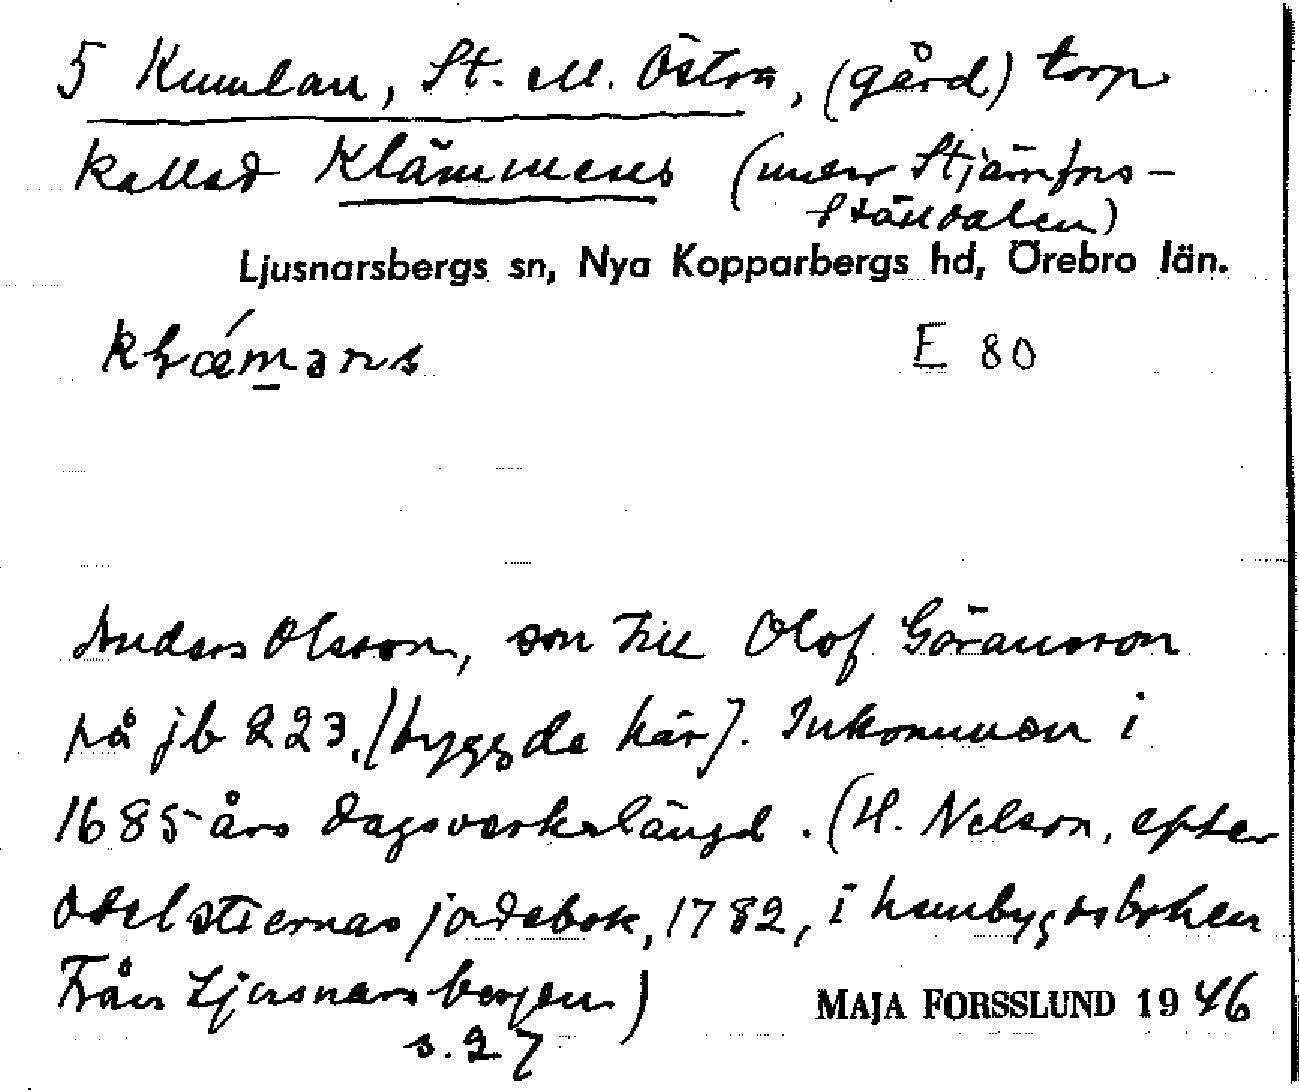 5 Kumlan, St. M. Östra, (gård) torp
kallad Klämmens (under Stjärnfors-
Ställdalen)
Ljusnarsbergs sn, Nya Kopparbergs hd, Örebro län.
E 80
Anders Olsson, son till Olof Göransson
på jb 223. [byggde här]. Inkommen i
1685 års dagsverkslängd. (H. Nelson, efter
Odelstiernas jordebok, 1782, i hembygdsboken
Från Ljusnarsbergen)
s. 27
MAJA FORSSLUND 1946